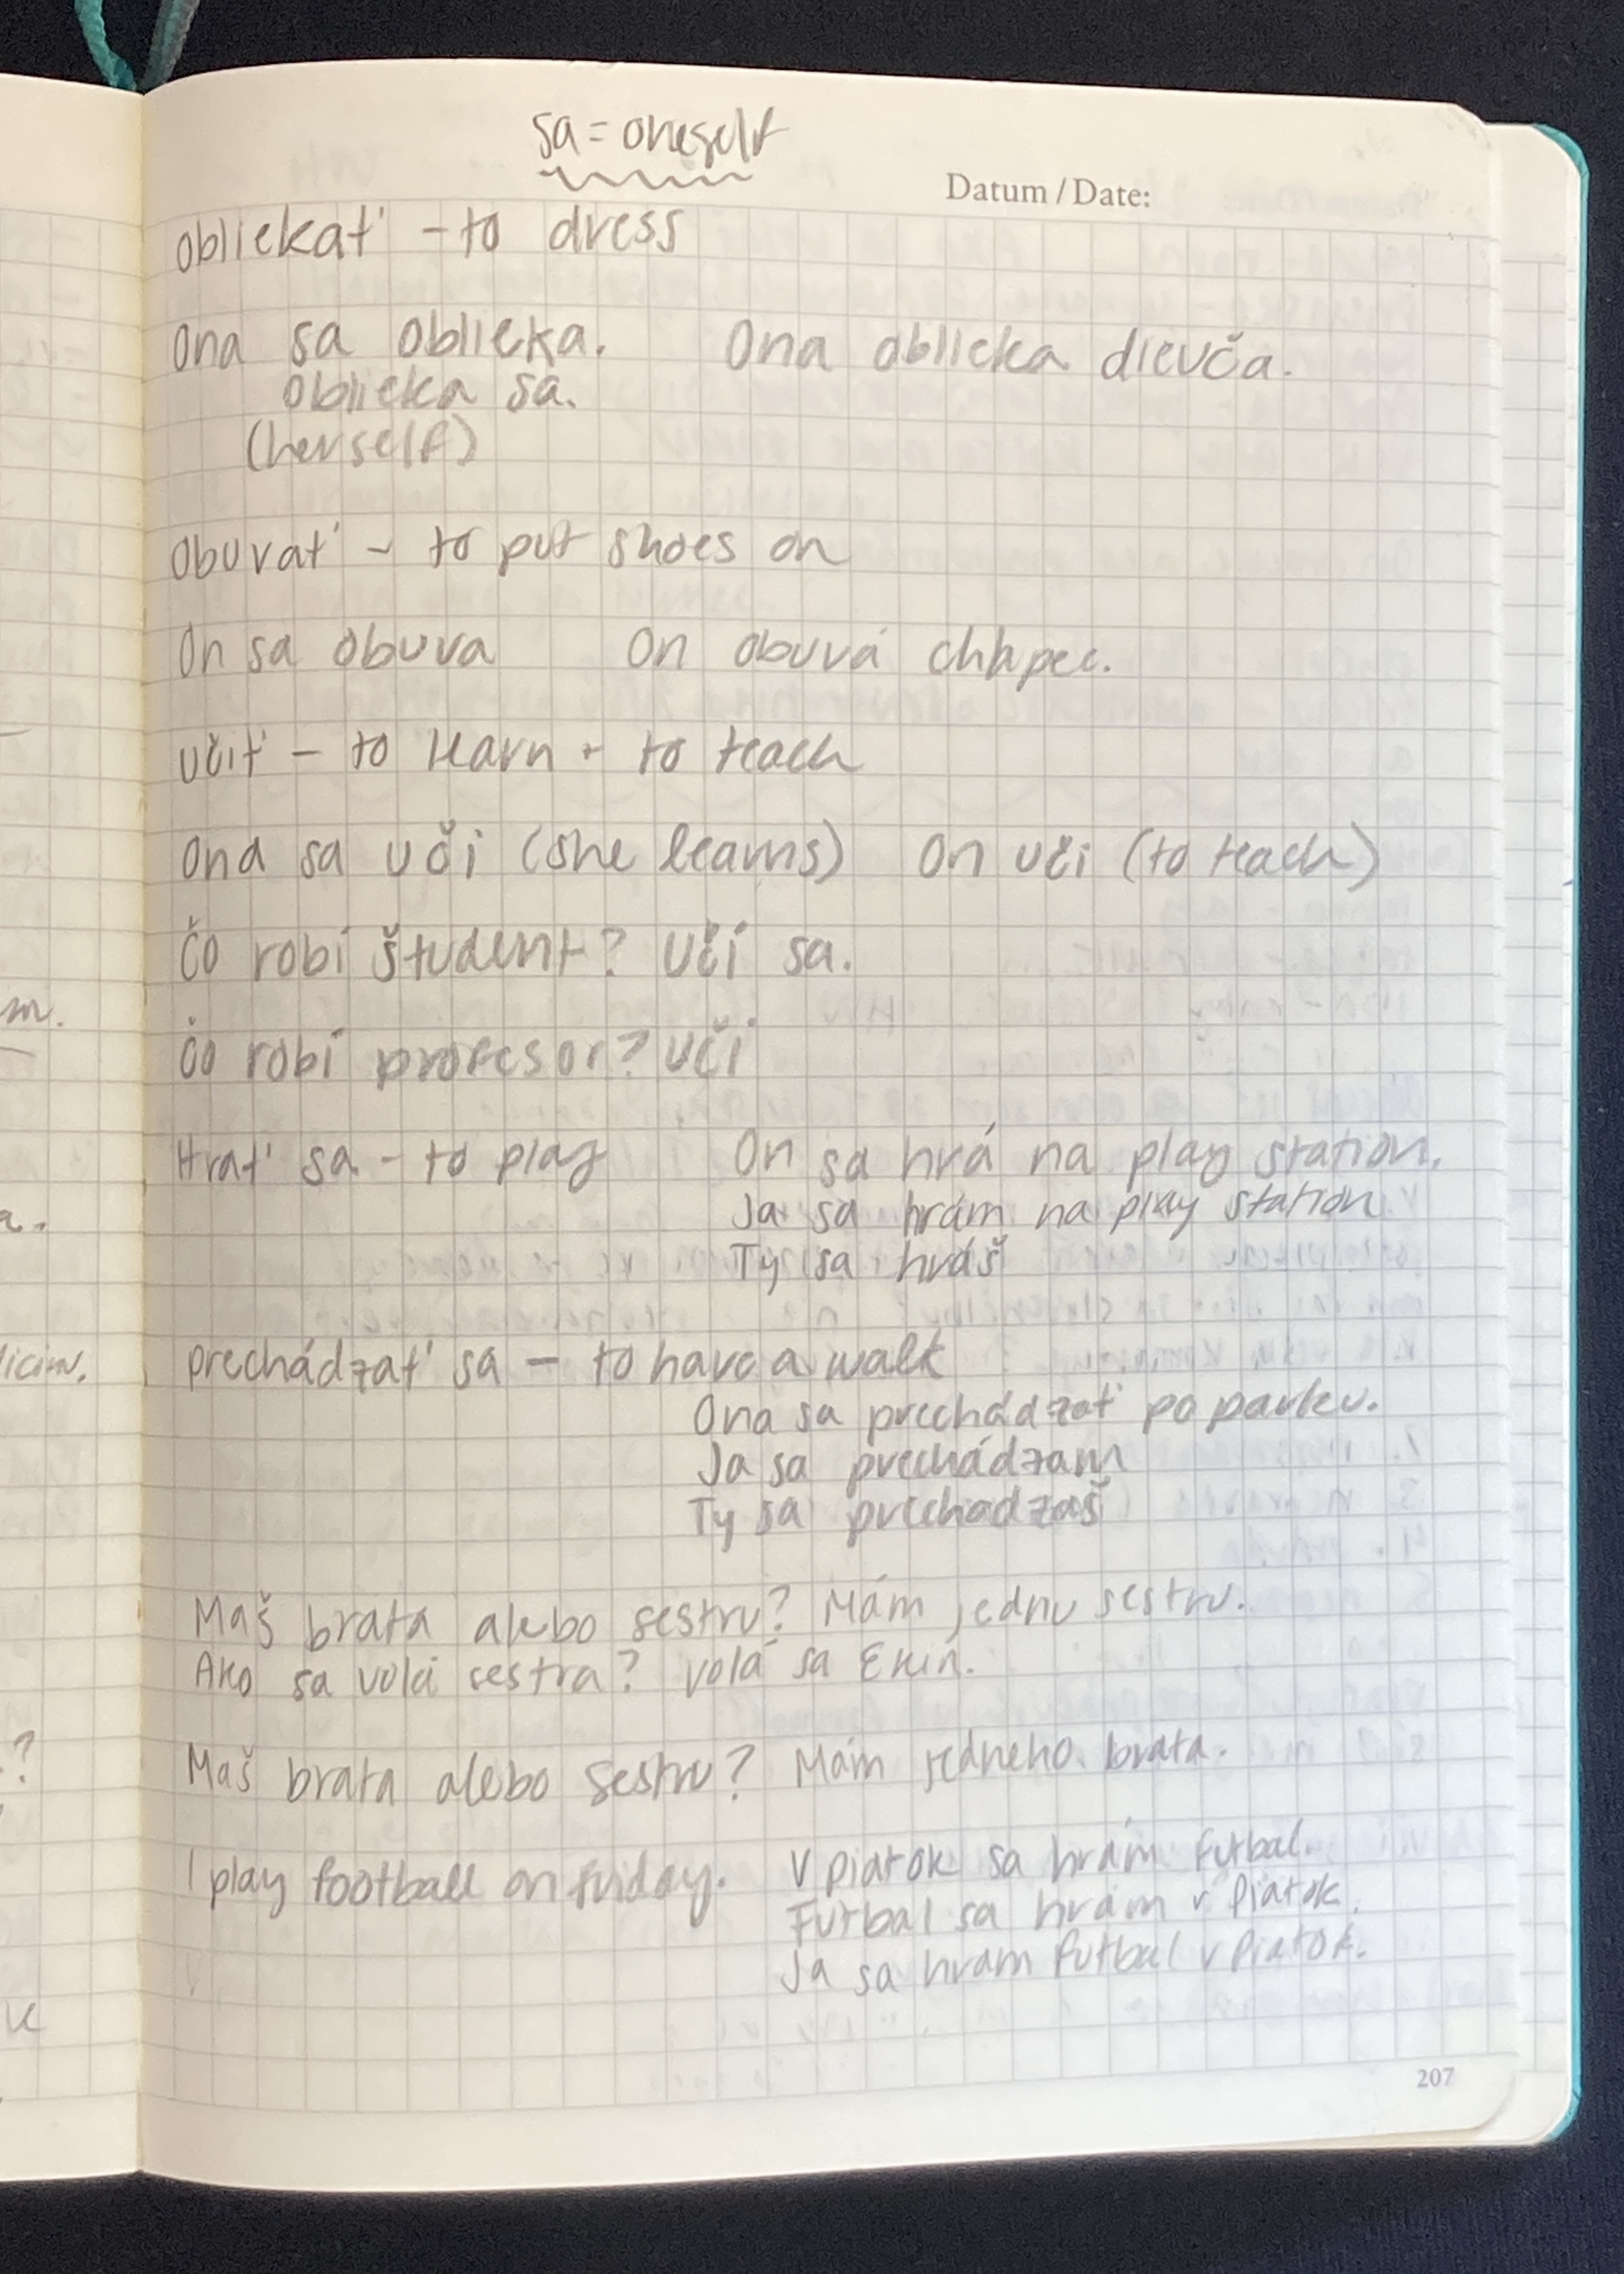 sa = oneself
Datum / Date:
obliekať - to dress
Ona sa oblieka. Ona oblieka dievča.
Oblieka sa.
(herself)
Obuvať - to put shoes on
On sa obuva On obuvá chlapec.
učiť - to learn + to teach
Ona sa učí (she learns) On učí (to teach)
Čo robí študent? Učí sa.
čo robí profesor? Učí
m.
Hrať sa - to play On sa hrá na play station.
Ja sa hrám na play station
a.
Ty sa hráš
prechádzať sa - to have a walk
Ona sa prechádzať po parku.
Ja sa prechádzam
Ty sa prechadzaš
Maš brata alebo sestru? Mám jednu sestru.
Ako sa volá sestra? Volá sa Ekin.
?
Maš brata alebo sestru? Mám jedneho brata.
I play football on friday. V piatok sa hrám futbal.
Futbal sa hrám v piatok.
Ja sa hram futbal v piatok.
207